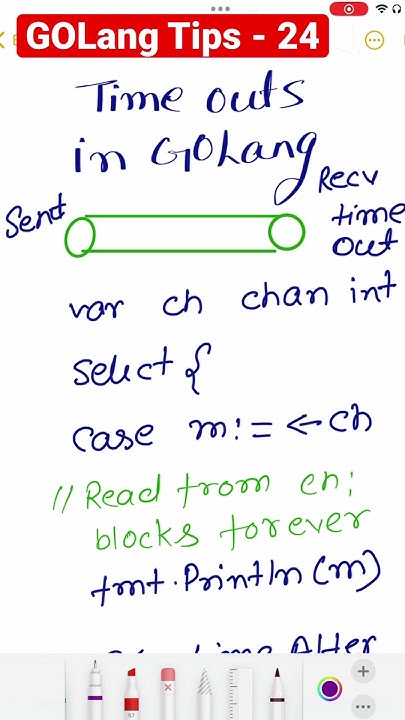 GOLang Tips - 24
Time outs
in GOLang
Send
Recv
time
out
var ch chan int
select {
case m := <- ch
// Read from ch;
blocks forever
fmt.Println(m)
time After